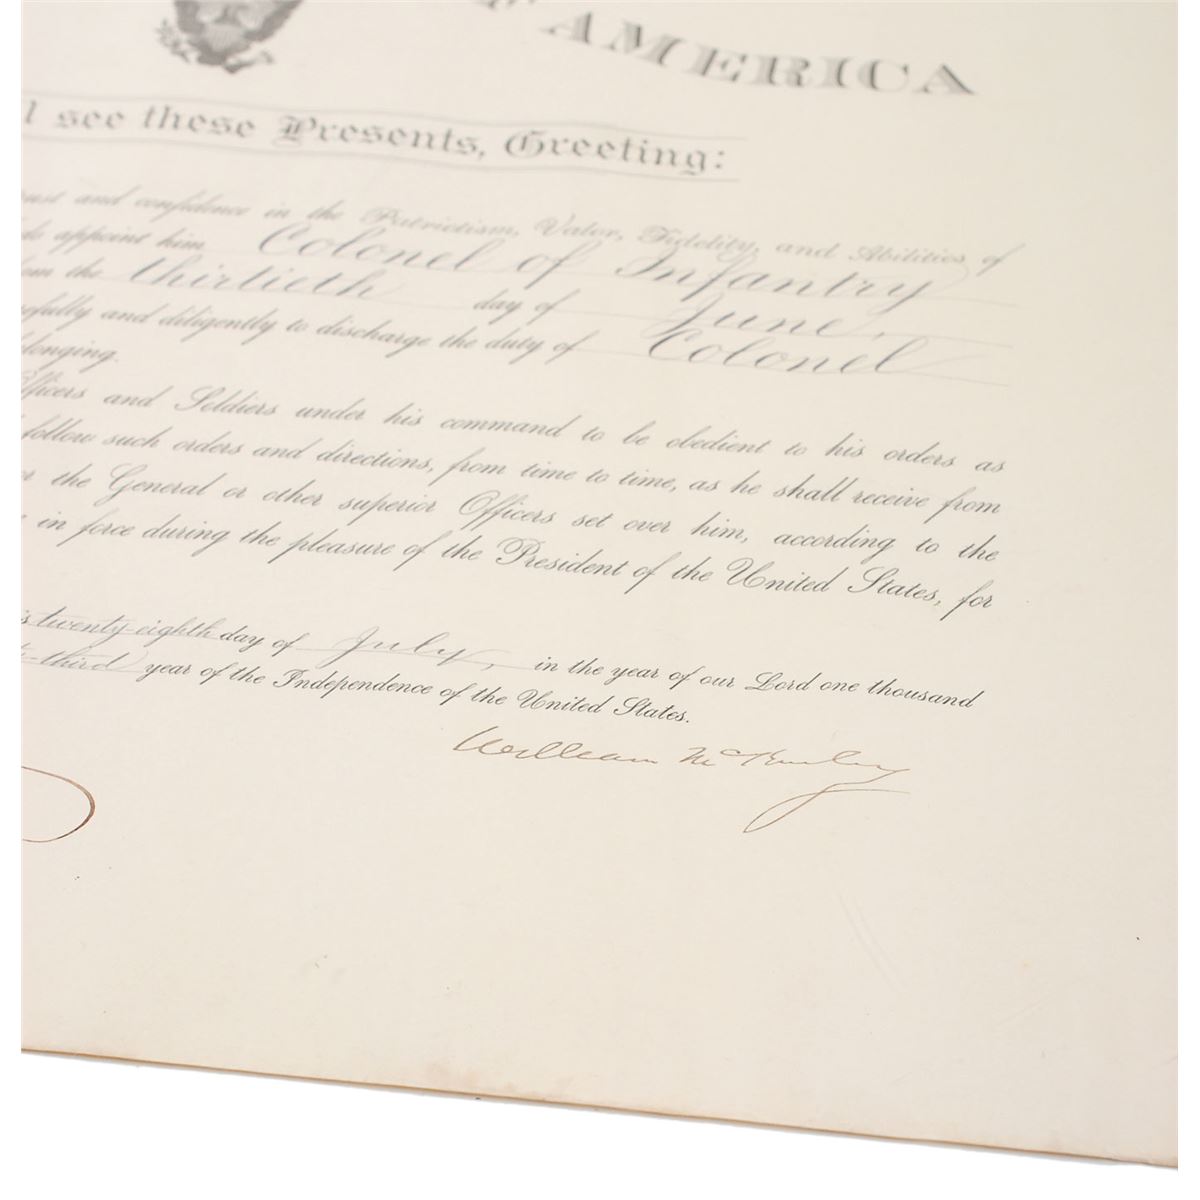 OF AMERICA
l see these Presents, Greeting:
rust and confidence in the Patriotism, Valor, Fidelity, and Abilities of
do appoint him Colonel of Infantry
from the thirtieth day of June,
efully and diligently to discharge the duty of Colonel
longing.
fficers and Soldiers under his command to be obedient to his orders as
follow such orders and directions, from time to time, as he shall receive from
or the General or other superior Officers set over him, according to the
in force during the pleasure of the President of the United States, for
s twenty-eighth day of July, in the year of our Lord one thousand
-third year of the Independence of the United States.
William McKinley